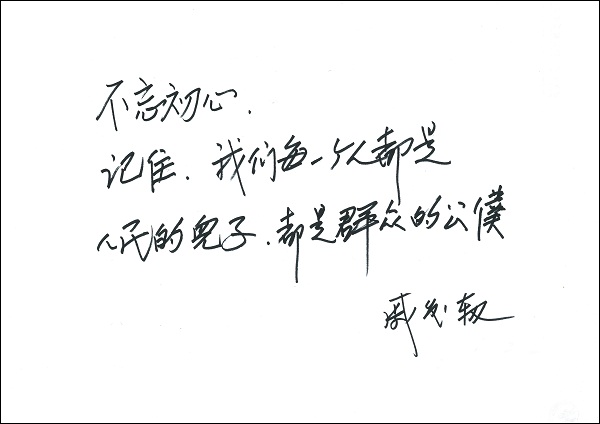 不忘初心.
记住.我们每一个人都是
人民的儿子.都是群众的公僕
戚发轫